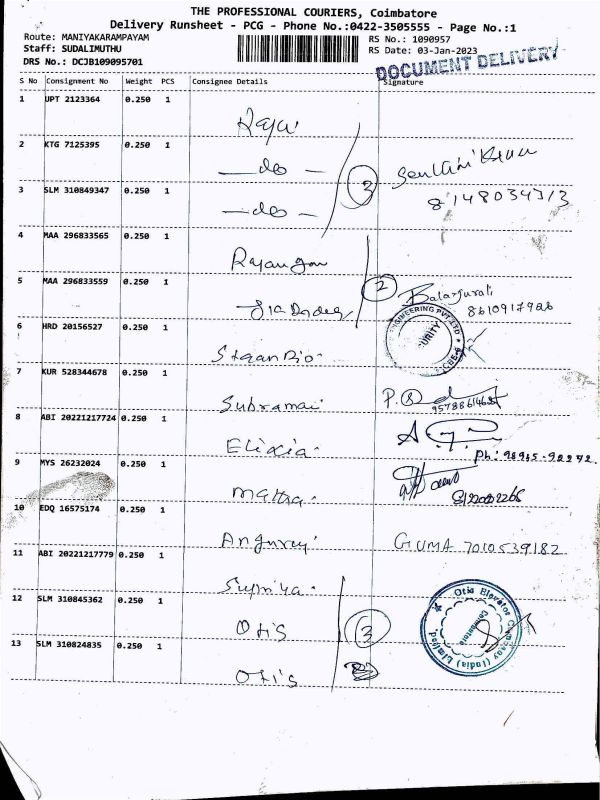 THE PROFESSIONAL COURIERS, Coimbatore
Delivery Runsheet - PCG - Phone No.:0422-3505555 - Page No.:1
Route: MANIYAKARAMPAYAM
RS No.: 1090957
Staff: SUDALIMUTHU
RS Date: 03-Jan-2023
DRS No.: DCJB109095701
DOCUMENT DELIVERY
S No Consignment No Weight PCS Consignee Details Signature
1 UPT 2123364 0.250 1
Raja
2 KTG 7125395 0.250 1
—do—
3 SLM 310849347 0.250 1
8148034313
—do— 3
4 MAA 296833565 0.250 1
Rajangam
5 MAA 296833559 0.250 1
2 Balamurali
8610917926
6 HRD 20156527 0.250 1
ENGINEERING PVT LTD
7 KUR 528344678 0.250 1
Subramai
8 ABI 20221217724 0.250 1
Elixia
9 MYS 26232024 0.250 1
10 EDQ 16575174 0.250 1
GUMA 7010539182
11 ABI 20221217779 0.250 1
Supriya
12 SLM 310845362 0.250 1
Otis 3
Otis Elevator Company (India) Limited
Coimbatore
13 SLM 310824835 0.250 1
Otis